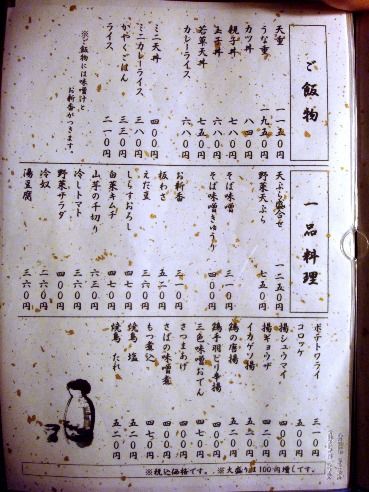 ご飯物
天重 一一五〇円
うな重 一九五〇円
カツ丼 八四〇円
親子丼 七八〇円
玉子丼 六八〇円
若草天丼 七五〇円
カレーライス 六八〇円
ミニ天丼 四〇〇円
ミニカレーライス 三八〇円
かやくごはん 三三〇円
ライス 二一〇円
※ご飯物には味噌汁と
お新香がつきます。
一品料理
天ぷら盛合せ 一二五〇円
野菜天ぷら 七五〇円
そば味噌 三一〇円
そば味噌きゅうり
お新香 三一〇円
板わさ 五二〇円
えだ豆 三六〇円
しらすおろし 四七〇円
白菜キムチ 四七〇円
山芋の千切り 六三〇円
冷しトマト 三六〇円
野菜サラダ 四〇〇円
冷奴 二六〇円
湯豆腐 三六〇円
ポテトフライ
コロッケ 三一〇円
揚シュウマイ 五〇〇円
揚ギョウザ 四〇〇円
イカゲソ揚
鶏の唐揚 五二〇円
鶏手羽ピリ辛揚
三色味噌おでん
さつまあげ 四〇〇円
さばの味噌煮
もつ煮込 四七〇円
焼鳥 塩 五二〇円
焼鳥 たれ 五二〇円
※税込価格です。 ※大盛りは100円増しです。